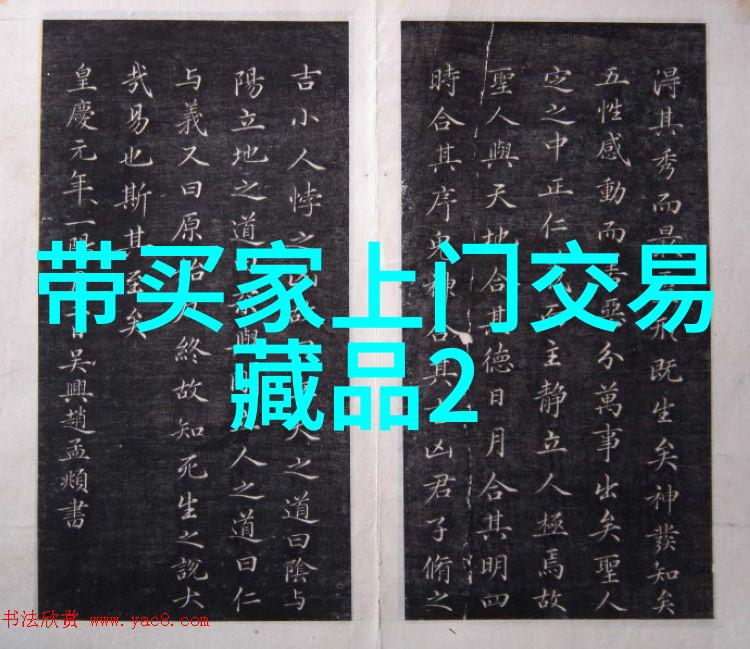 得其秀而最既生矣神發知矣
五性感動而善惡分萬事出矣聖人
定之中正仁而主静立人極焉故
聖人與天地合其德日月合其明四
時合其序鬼神合其凶君子脩之
吉小人悖之天之道曰陰与
陽立地之道與人之道曰仁
与義又曰原始終故知死生之說大
哉易也斯其至矣
皇慶元年一陽吳興趙孟頫書
带买家上门交易
藏品2
书法欣赏 www.yac8.com